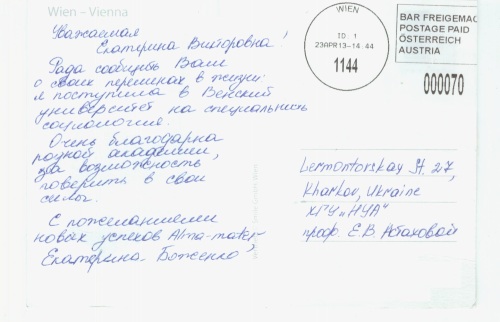 Wien – Vienna
Уважаемая
Екатерина Викторовна!
Рада сообщить Вам
о своих переменах в жизни:
я поступила в Венский
университет на специальность
социология.
Очень благодарна
родной академии,
за возможность
поверить в свои
силы.
С пожеланиями
новых успехов Alma-mater,
Екатерина Боженко
WIEN
ID 1
23APR13-14.44
1144
BAR FREIGEMAC
POSTAGE PAID
ÖSTERREICH
AUSTRIA
000070
Lermontovskay St. 27,
Kharkov, Ukraine
ХГУ „НУА"
проф. Е.В. Астаховой